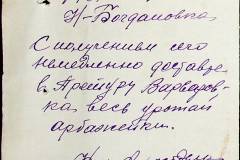 Н-Богдановка
С получением сего
немедленно доставте
в Претуру Варваров-
ка весь урожай
арбажейки.